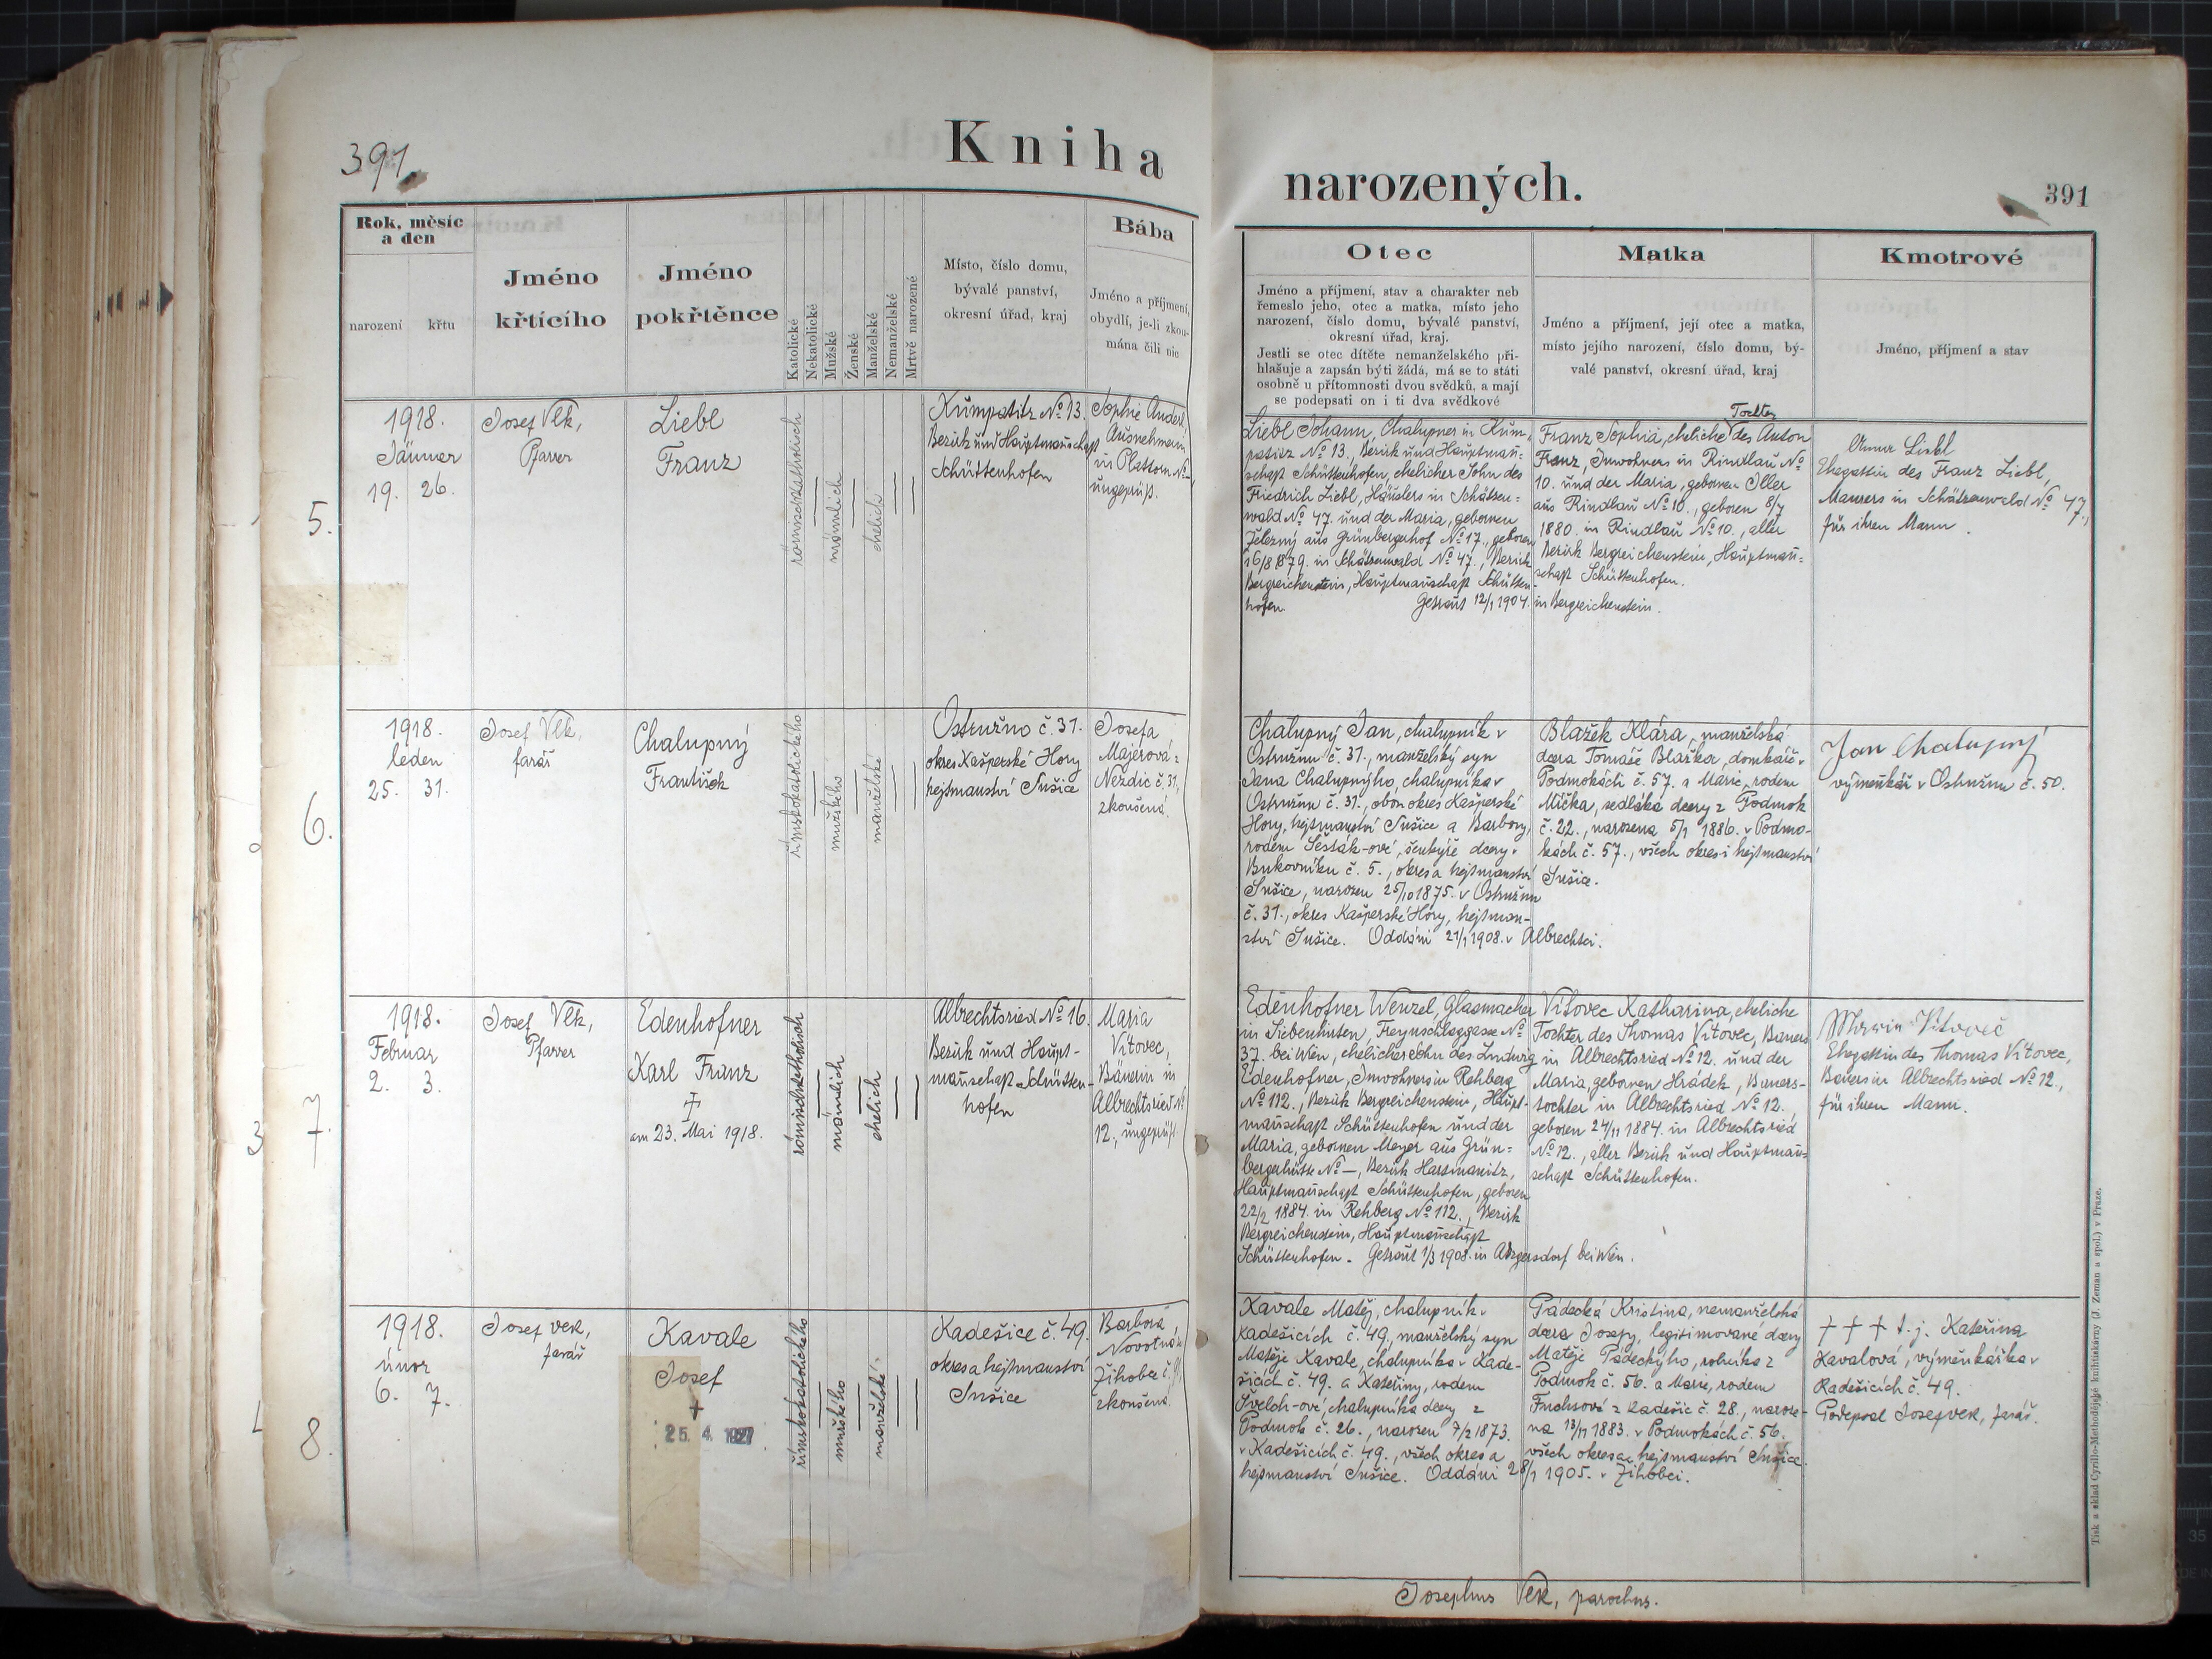 391
Kniha
narozených.
391
Rok, měsíc
a den
narození
křtu
Jméno
křtícího
Jméno
pokřtěnce
Katolické
Nekatolické
Mužské
Ženské
Manželské
Nemanželské
Mrtvě narozené
Místo, číslo domu,
bývalé panství,
okresní úřad, kraj
Bába
Jméno a příjmení,
obydlí, je-li zkou-
mána čili nic
Otec
Jméno a příjmení, stav a charakter neb
řemeslo jeho, otec a matka, místo jeho
narození, číslo domu, bývalé panství,
okresní úřad, kraj.
Jestli se otec dítěte nemanželského při-
hlašuje a zapsán býti žádá, má se to státi
osobně u přítomnosti dvou svědků, a mají
se podepsati on i ti dva svědkové
Matka
Jméno a příjmení, její otec a matka,
místo jejího narození, číslo domu, bý-
valé panství, okresní úřad, kraj
Kmotrové
Jméno, příjmení a stav
5.
1918.
Jänner
19. 26.
Josef Vlk,
Pfarrer
Liebl
Franz
römischkatholisch
männlich
ehelich
Kumpatitz No 13.
Bezirk und Hauptmannschaft
Schüttenhofen
Sophie Anderl,
Ausnehmerin
in Plattorn No —
ungeprüft.
Liebl Johann, Chalupner in Kum-
patitz No 13., Bezirk und Hauptman̄-
schaft Schüttenhofen, ehelicher Sohn des
Friedrich Liebl, Häuslers in Schätzen-
wald No 47. und der Maria, geborenen
Železný aus Grünbergerhof No 17., geboren
16/8 1879. in Schätzenwald No 47., Bezirk
Bergreichenstein, Hauptman̄schaft Schütten-
hofen. Getraut 12/1 1904. in Bergreichenstein.
Tochter
Franz Sophia, eheliche des Anton
Franz, Inwohners in Rindlau No
10. und der Maria, geborenen Oller
aus Rindlau No 10., geboren 8/7
1880. in Rindlau No 10., aller
Bezirk Bergreichenstein, Hauptman̄-
schaft Schüttenhofen.
Anna Liebl
Ehegattin des Franz Liebl,
Maurers in Schätzenwald No 47.,
für ihren Mann.
6.
1918.
leden
25. 31.
Josef Vlk,
farář
Chalupný
František
římskokatolického
mužského
manželské
Ostružno č. 31.
okres Kašperské Hory
hejtmanství Sušice
Josefa
Majerová z
Nezdic č. 31,
zkoušená.
Chalupný Jan, chalupník v
Ostružnu č. 31., manželský syn
Jana Chalupnýho, chalupníka v
Ostružnu č. 31., okres Kašperské
Hory, hejtmanství Sušice a Barbory,
rodem Šesták-ové, šenkýře dcery v
Bukovníku č. 5., okres a hejtmanství
Sušice, narozen 25/10 1875. v Ostružnu
č. 31., okres Kašperské Hory, hejtman-
ství Sušice. Oddáni 21/1 1908. v Albrechtci.
Blažek Klára, manželská
dcera Tomáše Blažka, domkáře v
Podmokách č. 57. a Marie, rodem
Mička, sedláka dcery z Podmok
č. 22., narozena 5/1 1886. v Podmo-
kách č. 57., všech okres i hejtmanství
Sušice.
Jan Chalupný
výměnkář v Ostružnu č. 50.
7.
1918.
Februar
2. 3.
Josef Vlk,
Pfarrer
Edenhofner
Karl Franz
†
am 23. Mai 1918.
römischkatholisch
männlich
ehelich
Albrechtsried No 16.
Bezirk und Haupt-
man̄schaft Schütten-
hofen
Maria
Vítovec,
Bäuerin in
Albrechtsried No
12., ungeprüft
Edenhofner Wenzel, Glasmacher
in Siebenhirten, Freyschlaggasse No
37. bei Wien, ehelicher Sohn des Ludwig
Edenhofner, Inwohners in Rehberg
No 112., Bezirk Bergreichenstein, Haupt-
man̄schaft Schüttenhofen und der
Maria, geborenen Meyer aus Grün-
bergerhütte No —, Bezirk Hartmanitz,
Hauptman̄schaft Schüttenhofen, geboren
22/2 1884. in Rehberg No 112., Bezirk
Bergreichenstein, Hauptman̄schaft
Schüttenhofen. Getraut 1/3 1908. in Atzgersdorf bei Wien.
Vítovec Katharina, eheliche
Tochter des Thomas Vítovec, Bauers
in Albrechtsried No 12. und der
Maria, geborenen Hrádek, Bauers-
tochter in Albrechtsried No 12.,
geboren 24/11 1884. in Albrechtsried
No 12., aller Bezirk und Hauptman̄-
schaft Schüttenhofen.
Vitovec
Ehegattin des Thomas Vítovec,
Bauers in Albrechtsried No 12.,
für ihren Mann.
8.
1918.
únor
6. 7.
Josef Vlk,
farář
Kavale
Josef
+
25. 4. 1927
římskokatolického
mužského
manželské
Kadešice č. 49.
okres a hejtmanství
Sušice
Barbora
Novotná z
Žihobce č.
zkoušená.
Kavale Matěj, chalupník v
Kadešicích č. 49., manželský syn
Matěje Kavale, chalupníka v Kade-
šicích č. 49. a Kateřiny, rodem
Švelch-ové, chalupníka dcery z
Podmok č. 26., narozen 7/2 1873.
v Kadešicích č. 49., všech okres a
hejtmanství Sušice. Oddáni 28/1 1905. v Žihobci.
Pádecká Kristina, nemanželská
dcera Josefy, legitimované dcery
Matěje Pádeckýho, rolníka z
Podmok č. 56. a Marie, rodem
Fuchsové z Kadešic č. 28., naroze-
na 13/11 1883. v Podmokách č. 56.
všech okres a hejtmanství Sušice.
† † † t. j. Kateřina
Kavalová, výměnkářka v
Kadešicích č. 49.
Podepsal Josef Vlk, farář.
Josephus Vlk, parochus.
Tisk a sklad Cyrillo-Methodějské knihtiskárny (J. Zeman a spol.) v Praze.